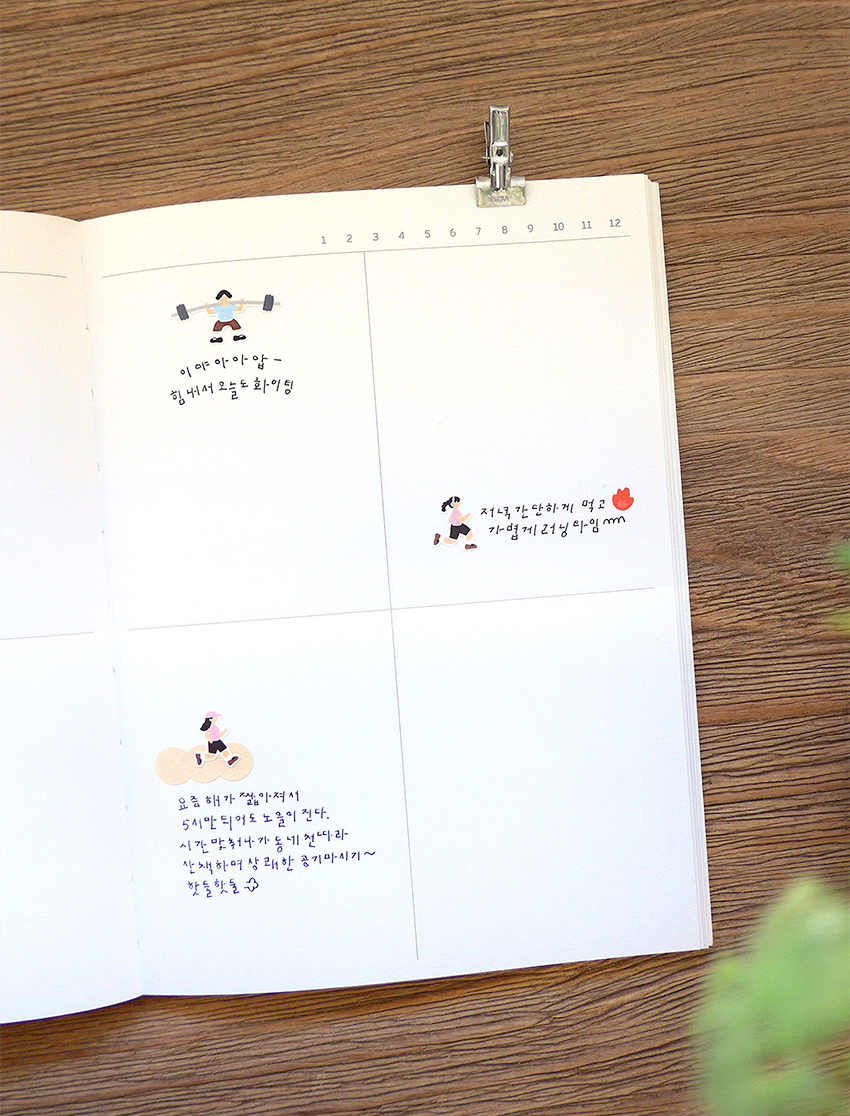 1 2 3 4 5 6 7 8 9 10 11 12
이야아아압-
힘내서 오늘도 화이팅
저녁 간단하게 먹고
가볍게 러닝타임
요즘 해가 짧아져서
5시만 되어도 노을이 진다.
시간 맞춰 나가 동네 천 따라
산책하며 상쾌한 공기 마시기~
핫둘핫둘